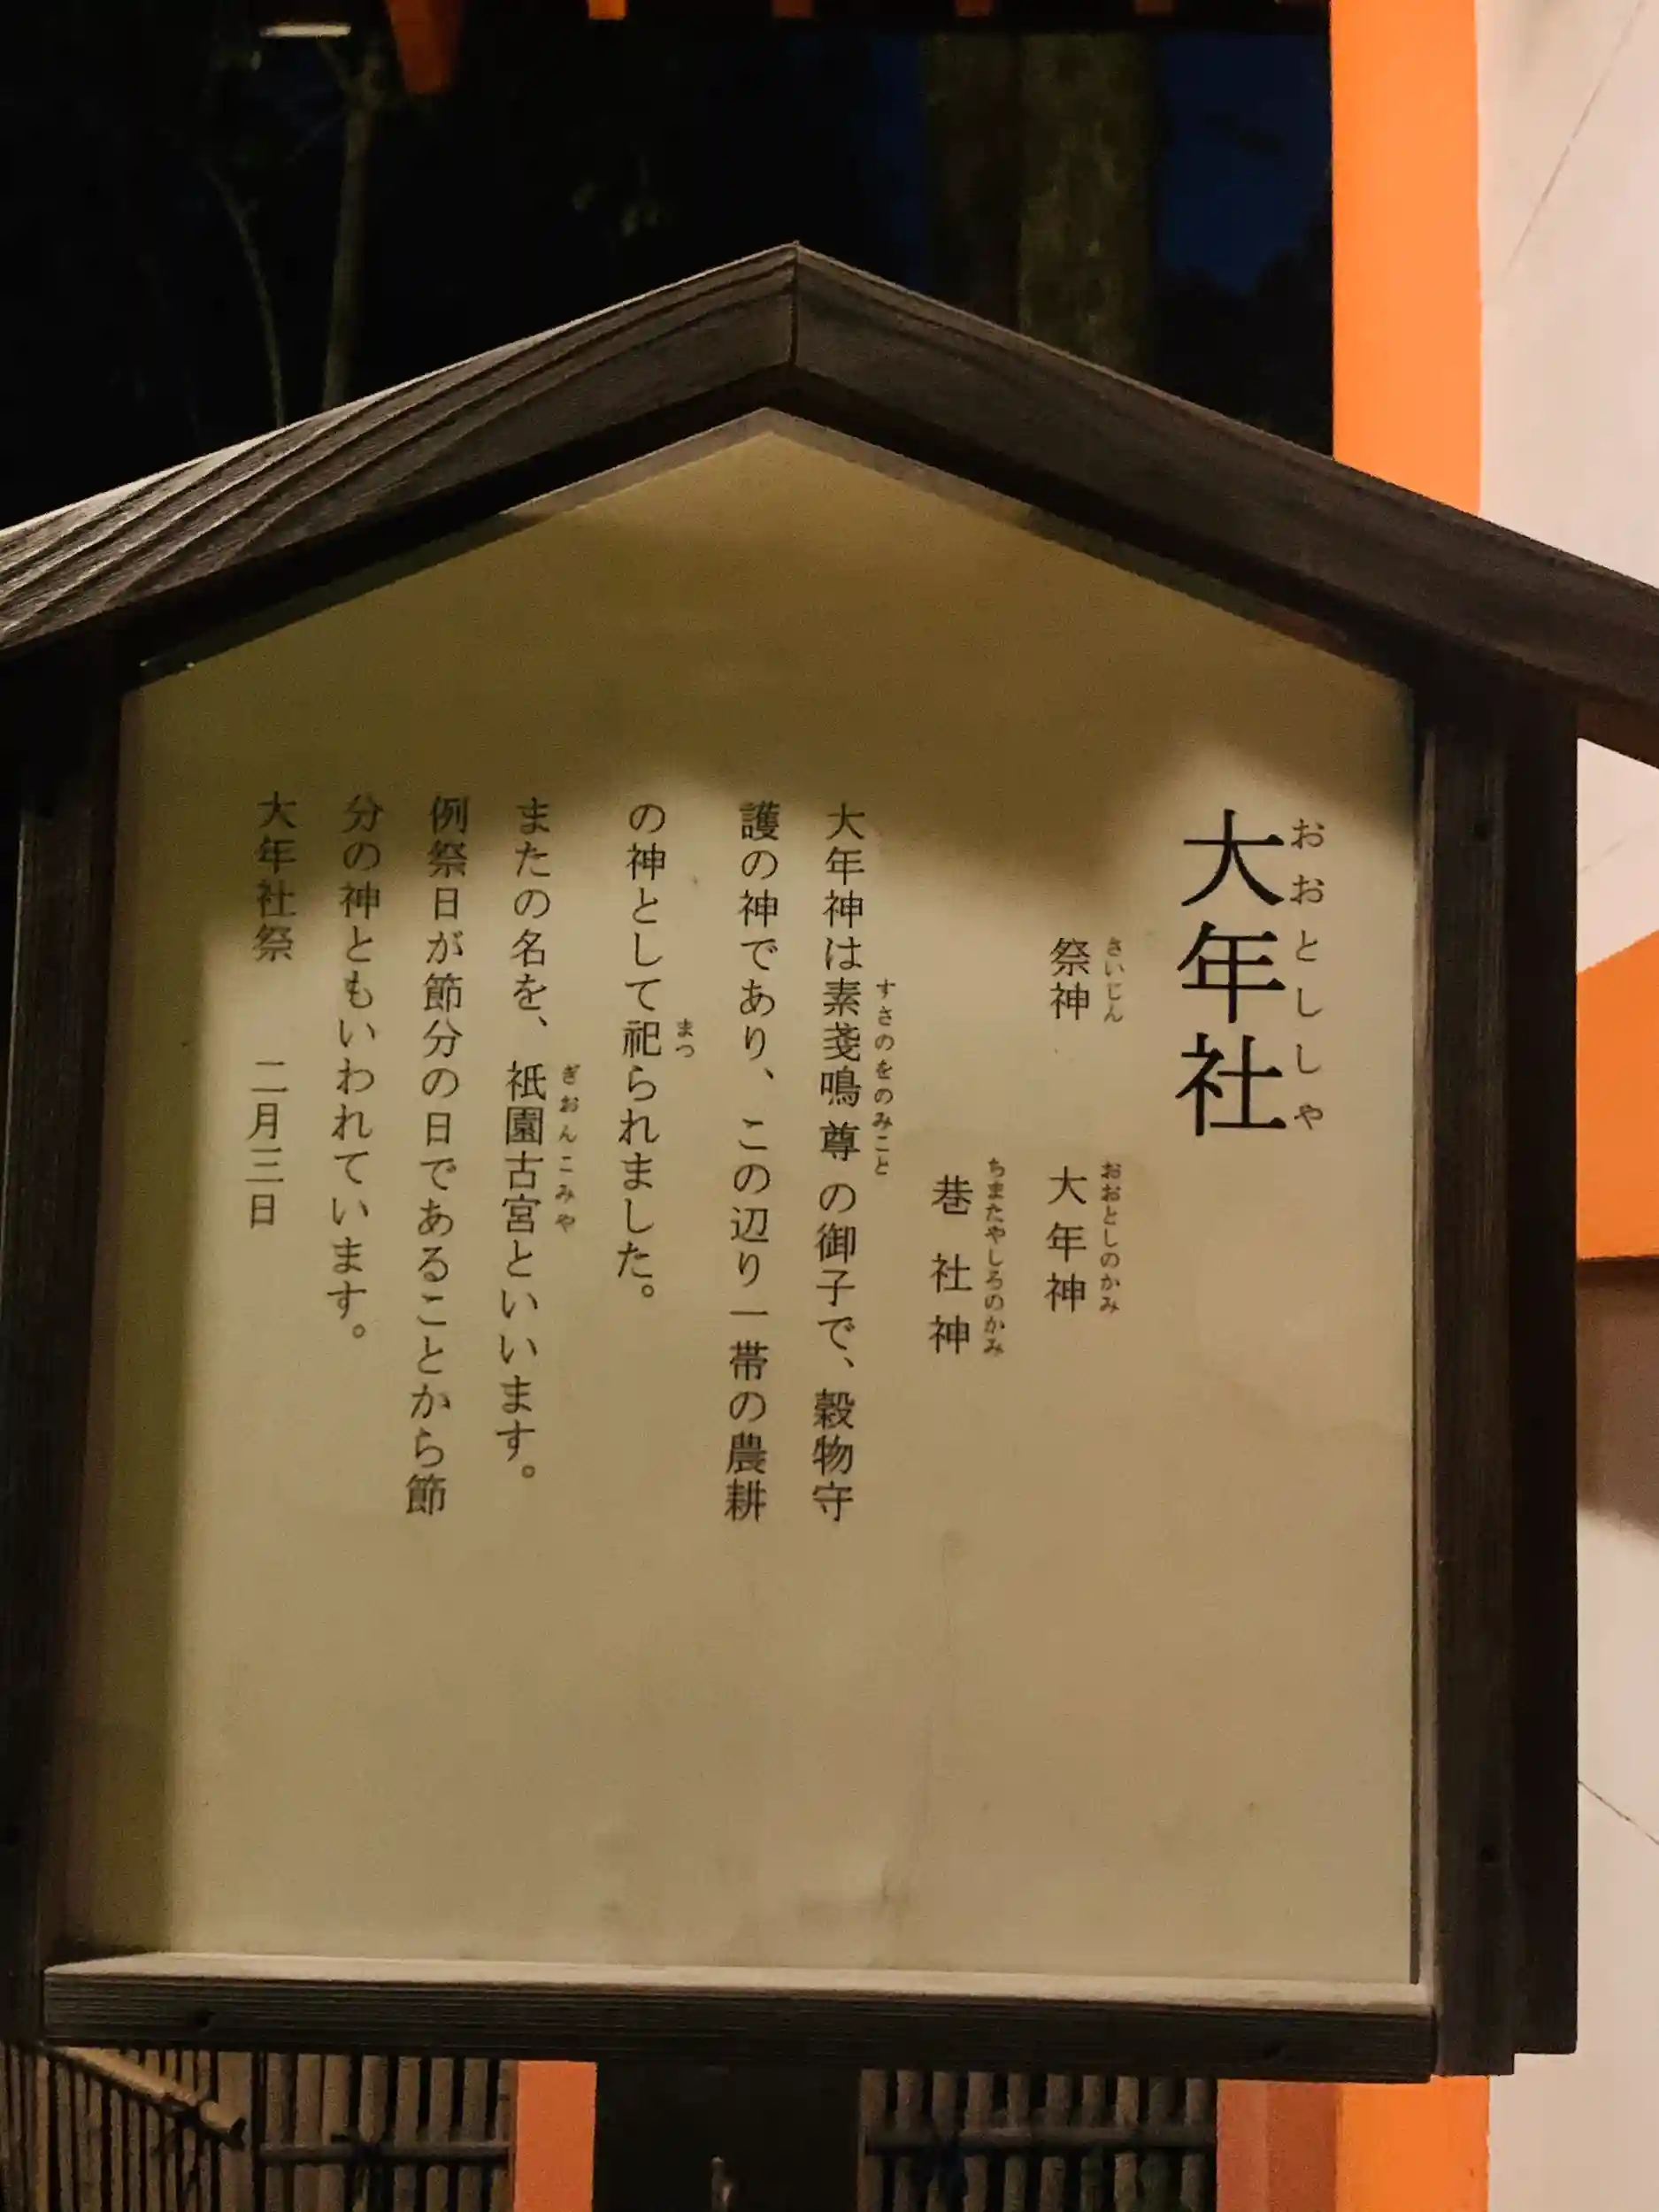 大年社
おおとししゃ
祭神　大年神
さいじん　おおとしのかみ
巷社神
ちまたやしろのかみ
大年神は素戔嗚尊の御子で、穀物守
すさのをのみこと
護の神であり、この辺り一帯の農耕
の神として祀られました。
まつ
またの名を、祇園古宮といいます。
ぎおんこみや
例祭日が節分の日であることから節
分の神ともいわれています。
大年社祭　二月三日